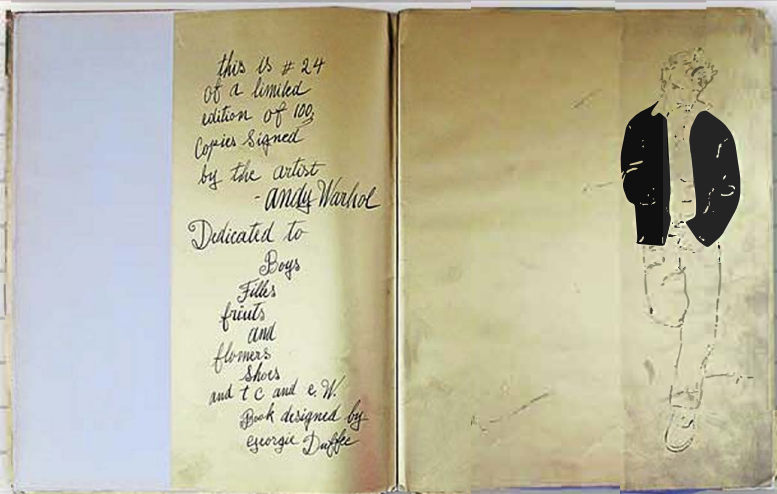 this is # 24
of a limited
edition of 100
Copies Signed
by the artist
- andy Warhol
Dedicated to
Boys
Filles
friuts
and
flowers
Shoes
and t c and e. W.
Book designed by
Georgie Duffee